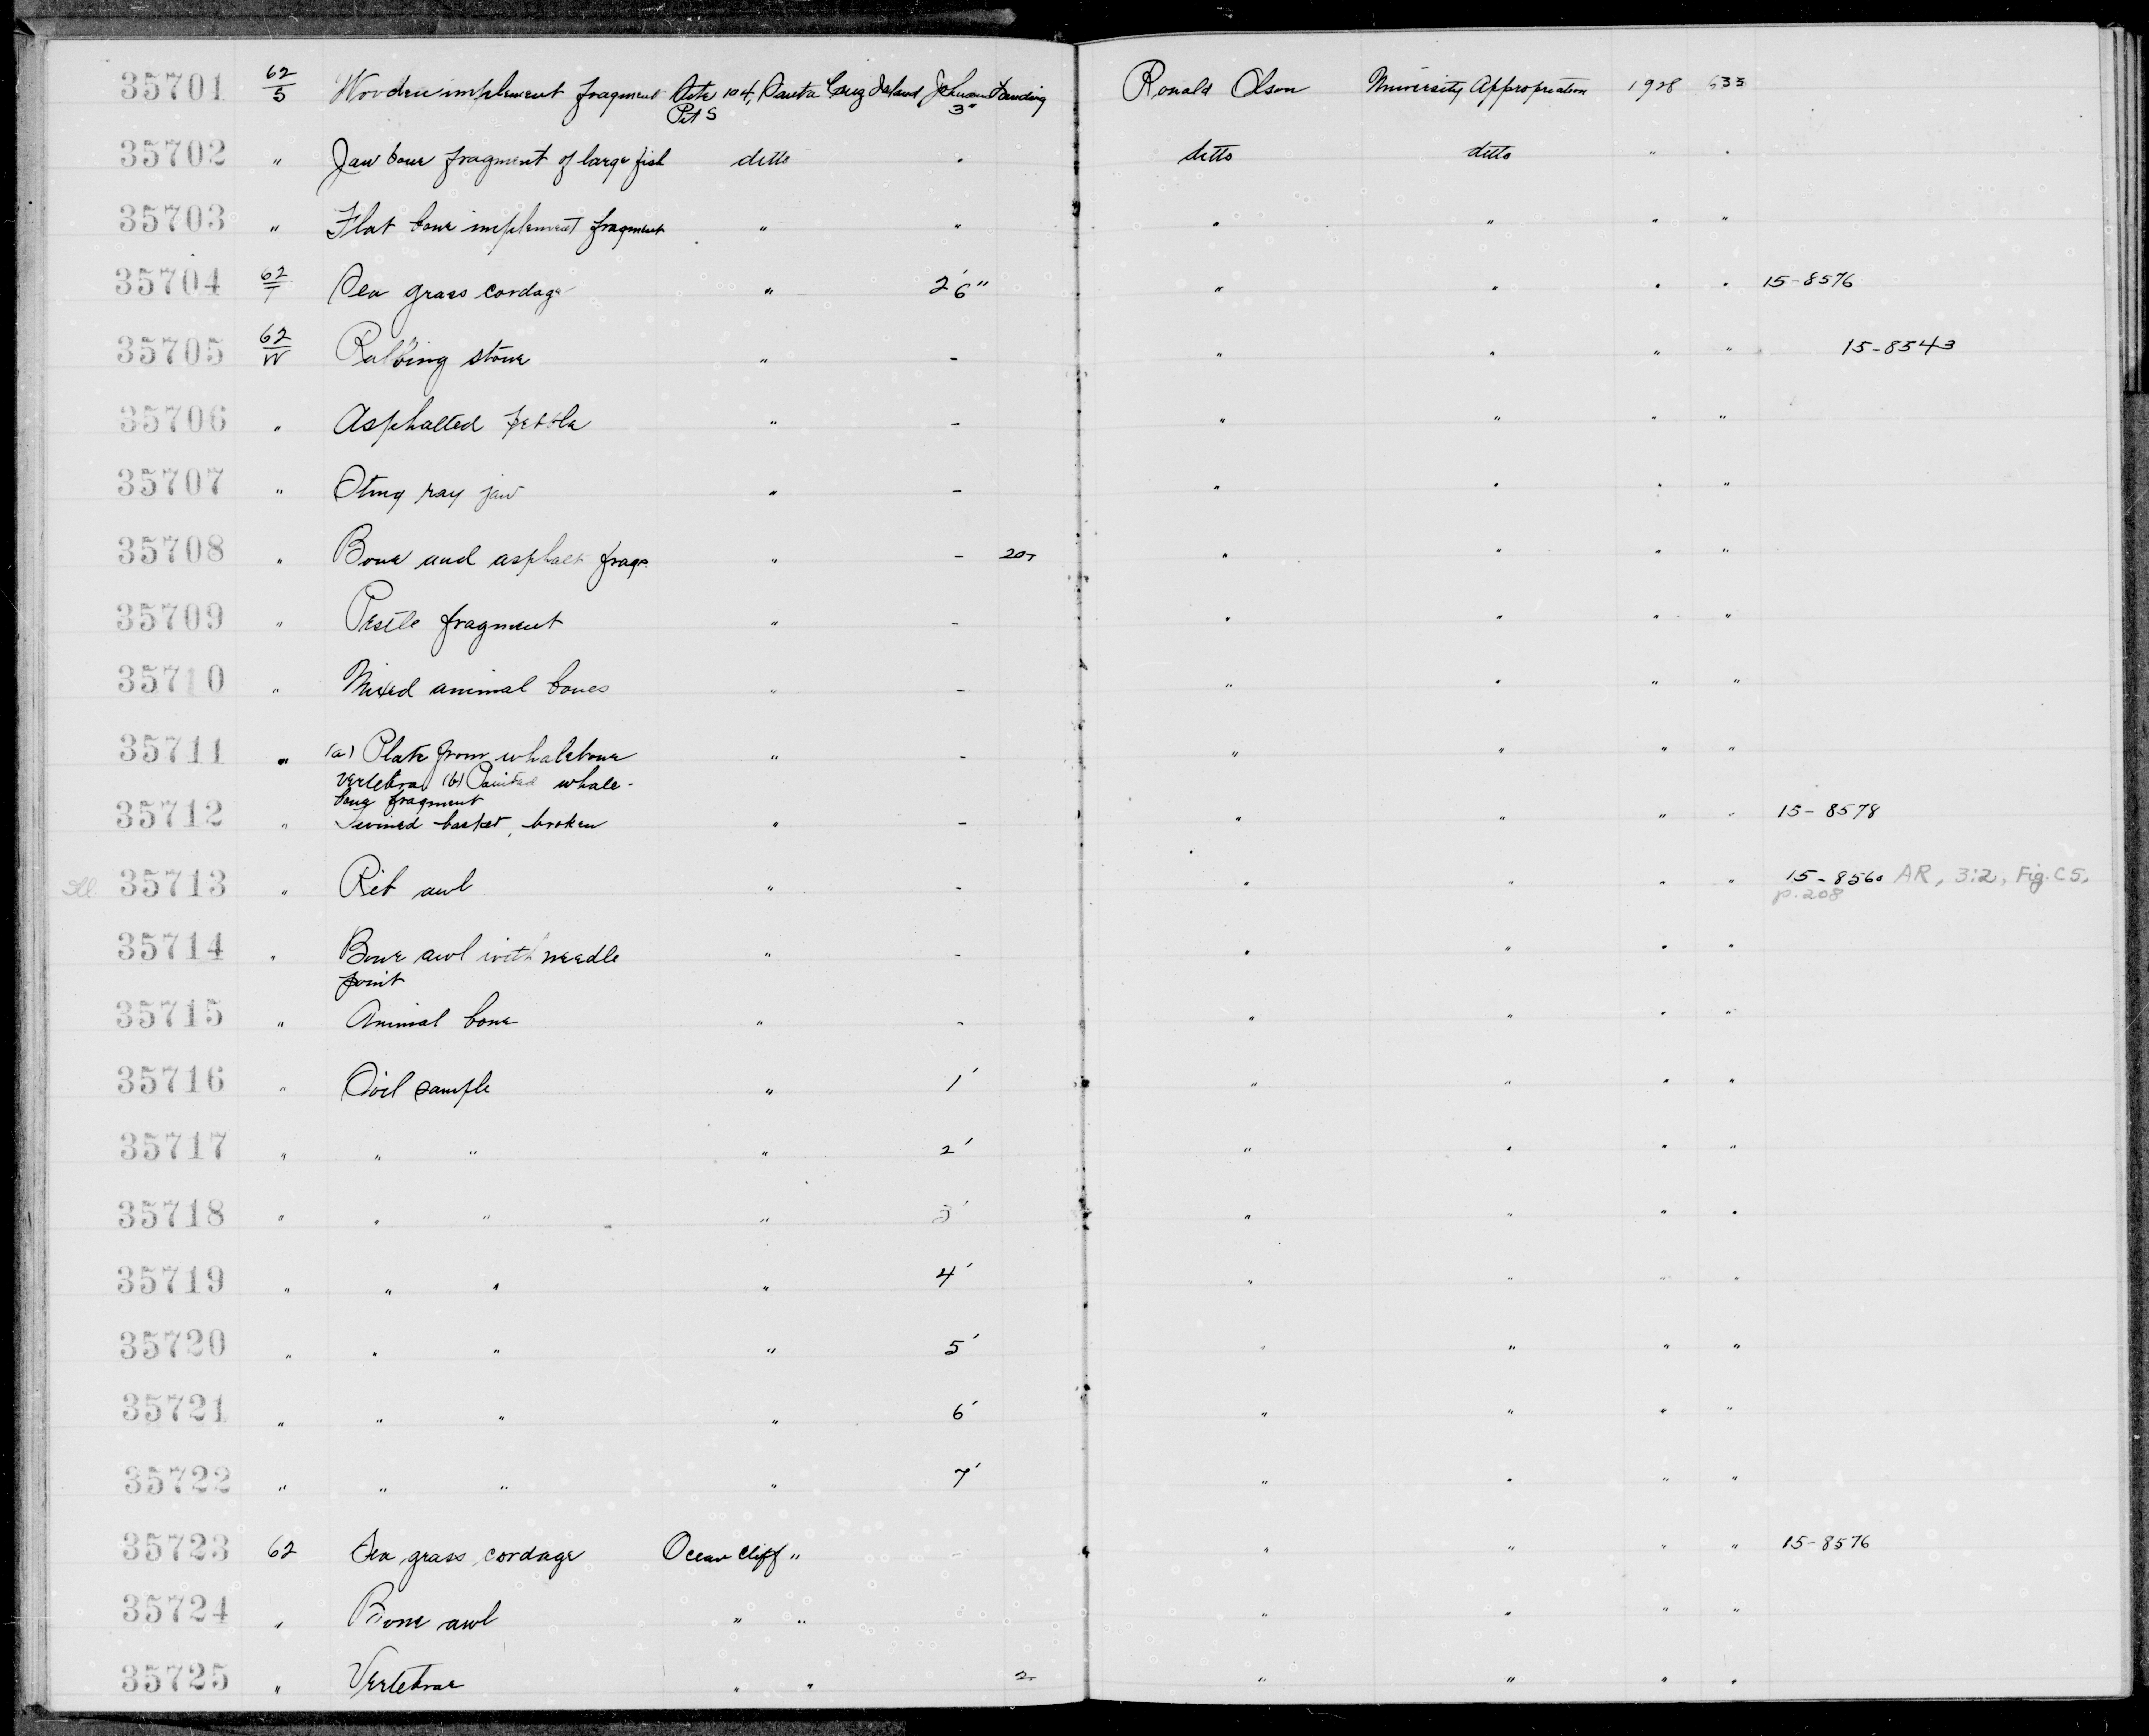 35701 62/5 Wooden implement fragment Site 104, Santa Cruz Island Johnson Landing Ronald Olson University Appropriation 1928 633
Pit S 3"
35702 " Jaw bone fragment of large fish ditto " ditto ditto " "
35703 " Flat bone implement fragment " " " " " "
35704 62/T Sea grass cordage " 2'6" " " " " 15-8576
35705 62/W Rubbing stone " - " " " " 15-8543
35706 " Asphalted pebble " - " " " "
35707 " Sting ray jaw " - " " " "
35708 " Bone and asphalt frags. " - 20- " " " "
35709 " Pestle fragment " - " " " "
35710 " Mixed animal bones " - " " " "
35711 " (a) Plate from whalebone " - " " " "
vertebra (b) Painted whale-
bone fragment
35712 " Twined basket, broken " - " " " " 15-8578
Ill. 35713 " Rib awl " - " " " " 15-8560 AR, 3:2, Fig. C5,
p. 208
35714 " Bone awl with needle " - " " " "
point
35715 " Animal bone " - " " " "
35716 " Soil sample " 1' " " " "
35717 " " " " 2' " " " "
35718 " " " " 3' " " " "
35719 " " " " 4' " " " "
35720 " " " " 5' " " " "
35721 " " " " 6' " " " "
35722 " " " " 7' " " " "
35723 62 Sea grass cordage Ocean Cliff " - " " " " 15-8576
35724 " Bone awl " " " " " "
35725 " Vertebrae " " 2- " " " "